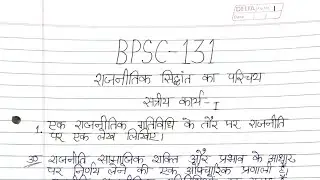 BPSC-131
राजनीतिक सिद्धांत का परिचय
सत्रीय कार्य-I
1. एक राजनीतिक गतिविधि के तौर पर राजनीति
पर एक लेख लिखिए।
उ० राजनीति सामाजिक शक्ति और प्रभव के आधार
पर निर्णय लेने की एक औपचारिक प्रणाली है।